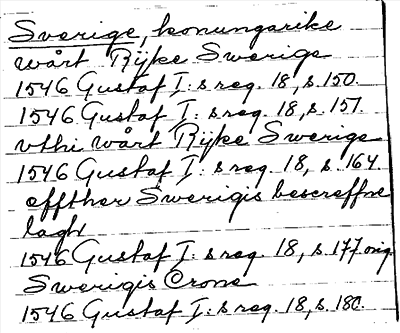 Sverige, konungarike
wårt Rijke Swerige
1546 Gustaf I:s reg. 18, s. 150.
1546 Gustaf I:s reg. 18, s. 157.
vthi wårt Rijke Swerige
1546 Gustaf I:s reg. 18, s. 164.
effther Swerigis bescreffne
lagh
1546 Gustaf I:s reg. 18, s. 177 orig.
Swerigis Crone
1546 Gustaf I:s reg. 18, s. 180.